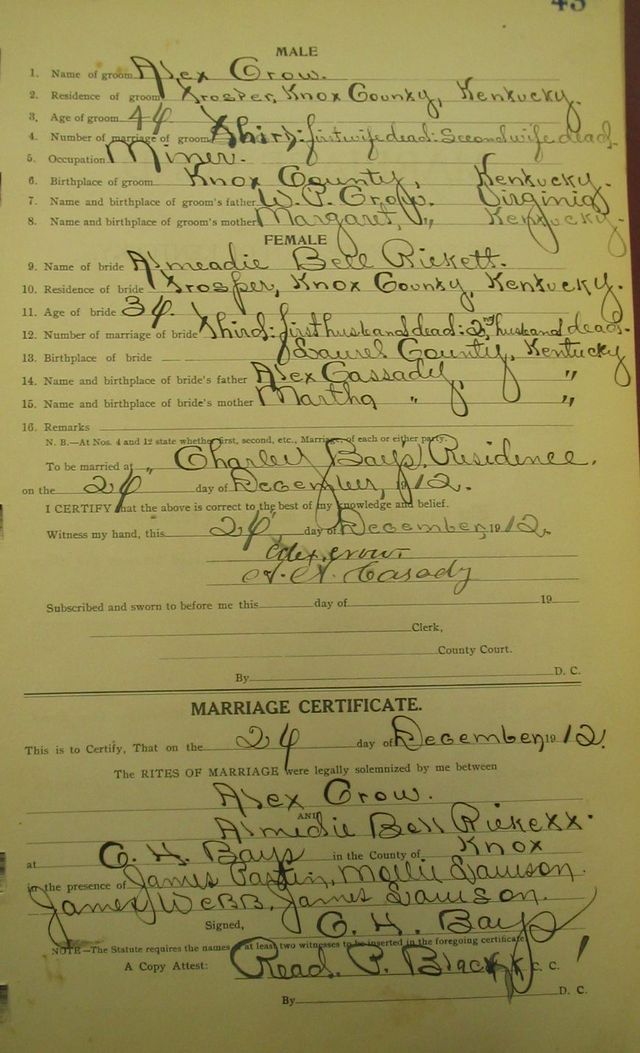 45
MALE
1. Name of groom Alex Crow.
2. Residence of groom Prosper, Knox County, Kentucky.
3. Age of groom 44
4. Number of marriage of groom Third: first wife dead: Second wife dead.
5. Occupation Miner.
6. Birthplace of groom Knox County, Kentucky.
7. Name and birthplace of groom's father W. P. Crow. Virginia
8. Name and birthplace of groom's mother Margaret, " Kentucky.
FEMALE
9. Name of bride Almeadie Bell Rickett.
10. Residence of bride Prosper, Knox County, Kentucky.
11. Age of bride 34.
12. Number of marriage of bride Third: first husband dead: 2nd husband dead.
13. Birthplace of bride Laurel County, Kentucky
14. Name and birthplace of bride's father Alex Cassady, "
15. Name and birthplace of bride's mother Martha " "
16. Remarks
N. B.—At Nos. 4 and 12 state whether first, second, etc., Marriage of each or either party.
To be married at Charley Bays, Residence.
on the 24 day of December, 1912.
I CERTIFY that the above is correct to the best of my knowledge and belief.
Witness my hand, this 24, day of December 1912.
Alex Crow
Casady
Subscribed and sworn to before me this day of 19
Clerk,
County Court.
By D. C.
MARRIAGE CERTIFICATE.
This is to Certify, That on the 24 day of December 1912.
The RITES OF MARRIAGE were legally solemnized by me between
Alex Crow.
AND
Almedie Bell Rickett.
at C. H. Bays in the County of Knox
in the presence of James Mollie Lawson.
James Webb, James Lawson.
Signed, C. H. Bays
NOTE—The Statute requires the names of at least two witnesses to be inserted in the foregoing certificate
A Copy Attest: Read. P. Black C. C.
By D. C.